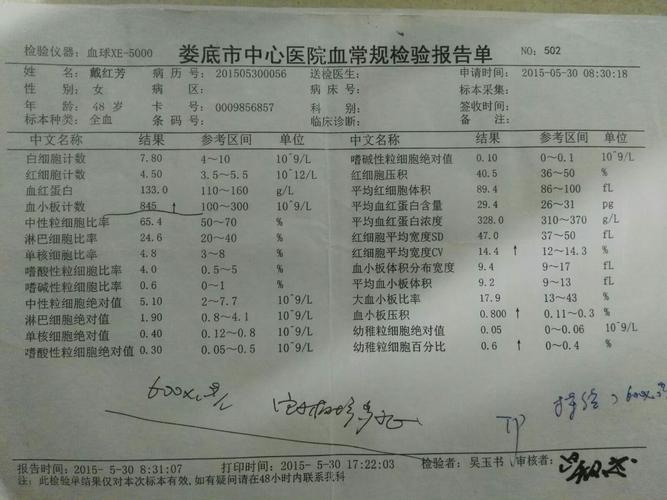 检验仪器: 血球XE-5000 娄底市中心医院血常规检验报告单 NO: 502
姓 名: 戴红芳 病 历 号: 201505300056 送检医生: 申请时间: 2015-05-30 08:30:18
性 别: 女 病 区: 病 床 号: 标本采集:
年 龄: 48 岁 卡 号: 0009856857 科 别: 签收时间:
标本种类: 全血 条 码 号: 临床诊断: 备 注:
中文名称 结果 参考区间 单位 中文名称 结果 参考区间 单位
白细胞计数 7.80 4~10 10^9/L 嗜碱性粒细胞绝对值 0.10 0~0.1 10^9/L
红细胞计数 4.50 3.5~5.5 10^12/L 红细胞压积 40.5 36~50 %
血红蛋白 133.0 110~160 g/L 平均红细胞体积 89.4 86~100 fL
血小板计数 845 ↑ 100~300 10^9/L 平均血红蛋白含量 29.4 26~31 pg
中性粒细胞比率 65.4 50~70 % 平均血红蛋白浓度 328.0 310~370 g/L
淋巴细胞比率 24.6 20~40 % 红细胞平均宽度SD 47.0 37~50 fL
单核细胞比率 4.8 3~8 % 红细胞平均宽度CV 14.4 ↑ 12~14.3 %
嗜酸性粒细胞比率 4.0 0.5~5 % 血小板体积分布宽度 9.4 9~17 fL
嗜碱性粒细胞比率 0.6 0~1 % 平均血小板体积 9.2 9~13 fL
中性粒细胞绝对值 5.10 2~7.7 10^9/L 大血小板比率 17.9 13~43 %
淋巴细胞绝对值 1.90 0.8~4.1 10^9/L 血小板压积 0.800 ↑ 0.11~0.3 %
单核细胞绝对值 0.40 0.12~0.8 10^9/L 幼稚粒细胞绝对值 0.05 0~0.06 10^9/L
嗜酸性粒细胞绝对值 0.30 0.05~0.5 10^9/L 幼稚粒细胞百分比 0.6 ↑ 0~0.4 %
报告时间: 2015- 5-30 8:31:07 打印时间: 2015- 5-30 17:22:03 检验者: 吴玉书 审核者:
注: 此检验单结果仅对本次标本有效, 如有疑问请在48小时内联系我科